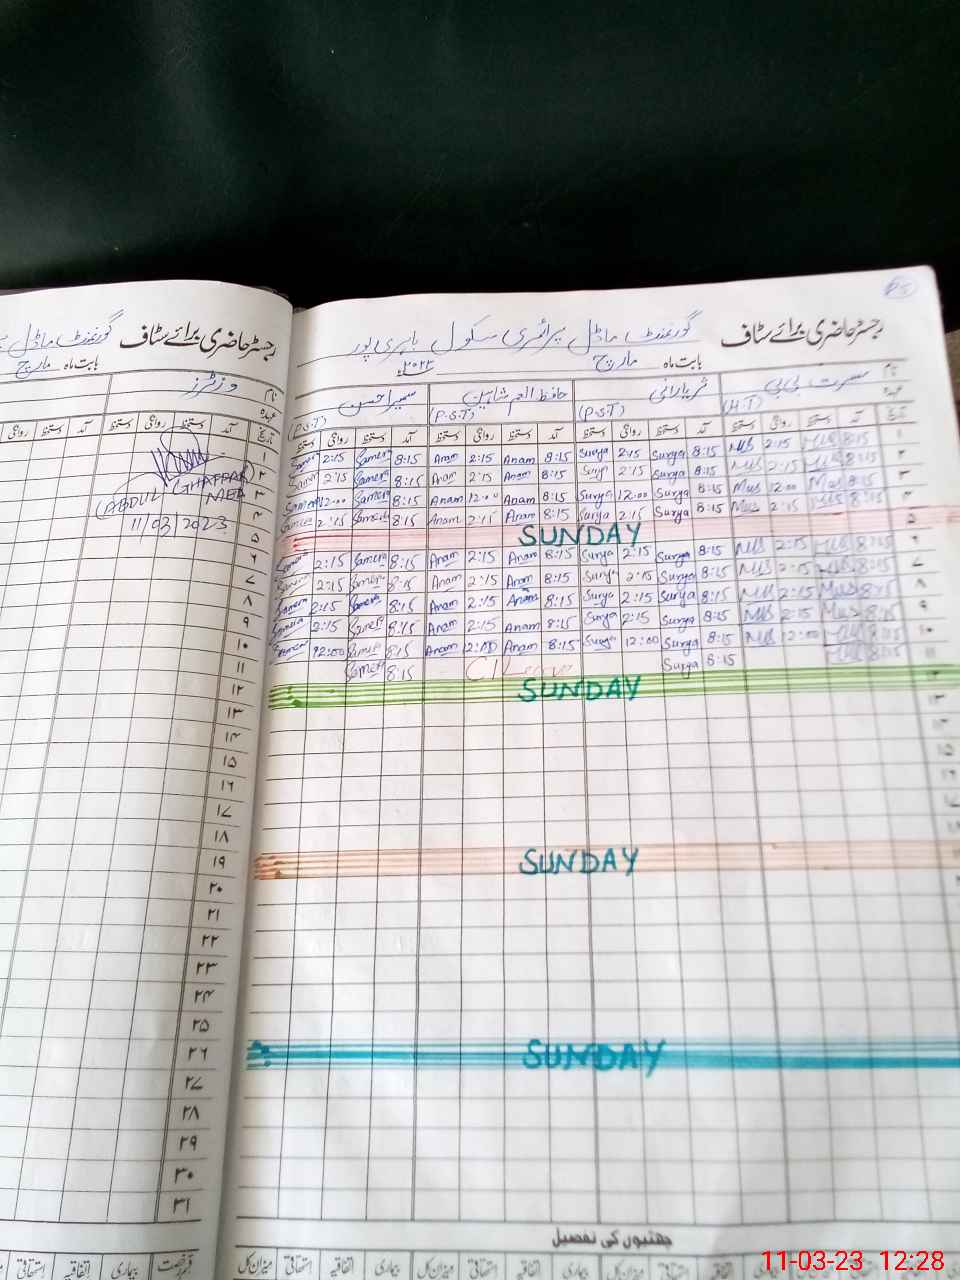 رجسٹر حاضری برائے سٹاف
گورنمنٹ ماڈل
بابت ماہ مارچ
نام وزٹرز
عہدہ
تاریخ آمد دستخط روانگی دستخط آمد دستخط روانگی
(ABDUL GHAFFAR)
MEA
11/03/2023
۱
۲
۳
۴
۵
۶
۷
۸
۹
۱۰
۱۱
۱۲
۱۳
۱۴
۱۵
۱۶
۱۷
۱۸
۱۹
۲۰
۲۱
۲۲
۲۳
۲۴
۲۵
۲۶
۲۷
۲۸
۲۹
۳۰
۳۱
قسم رخصت بیماری اتفاقیہ استحقاقی
رجسٹر حاضری برائے سٹاف گورنمنٹ ماڈل پرائمری سکول
بابت ماہ مارچ
نام مسرت بی بی ثریا رانی سمیرا حسن
عہدہ (H.T) (P.S.T) (P.S.T) (P.S.T)
تاریخ آمد دستخط روانگی دستخط آمد دستخط روانگی دستخط آمد دستخط روانگی دستخط آمد دستخط روانگی دستخط
2:15 Samera 8:15 Anam 2:15 Anam 8:15 Surya 2:15 Surya 8:15 Mus 2:15 Mus 8:15
2:15 Samera 8:15 Anam 2:15 Anam 8:15 Surya 2:15 Surya 8:15 Mus 2:15 Mus 8:15
12:00 Samera 8:15 Anam 12:00 Anam 8:15 Surya 12:00 Surya 8:15 Mus 12:00 Mus 8:15
2:15 Samera 8:15 Anam 2:15 Anam 8:15 Surya 2:15 Surya 8:15 Mus 2:15 Mus 8:15
SUNDAY
Samera 2:15 Samera 8:15 Anam 2:15 Anam 8:15 Surya 2:15 Surya 8:15 Mus 2:15 Mus 8:15
Samera 2:15 Samera 8:15 Anam 2:15 Anam 8:15 Surya 2:15 Surya 8:15 Mus 2:15 Mus 8:15
Samera 2:15 Samera 8:15 Anam 2:15 Anam 8:15 Surya 2:15 Surya 8:15 Mus 2:15 Mus 8:15
Samera 2:15 Samera 8:15 Anam 2:15 Anam 8:15 Surya 2:15 Surya 8:15 Mus 2:15 Mus 8:15
Samera 12:00 Samera 8:15 Anam 12:00 Anam 8:15 Surya 12:00 Surya 8:15 Mus 12:00 Mus 8:15
Samera 8:15 Surya 8:15 Mus 8:15
SUNDAY
SUNDAY
SUNDAY
چھٹیوں کی تفصیل
میزان کل استحقاقی اتفاقیہ بیماری میزان کل استحقاقی اتفاقیہ بیماری میزان کل استحقاقی
11-03-23 12:28